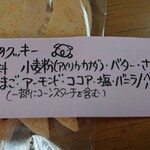 のクッキー
料 小麦粉(アメリカ・カナダ)・バター・さ
まご・アーモンド・ココア・塩・バニラ
(一部にコーンスターチを含む)